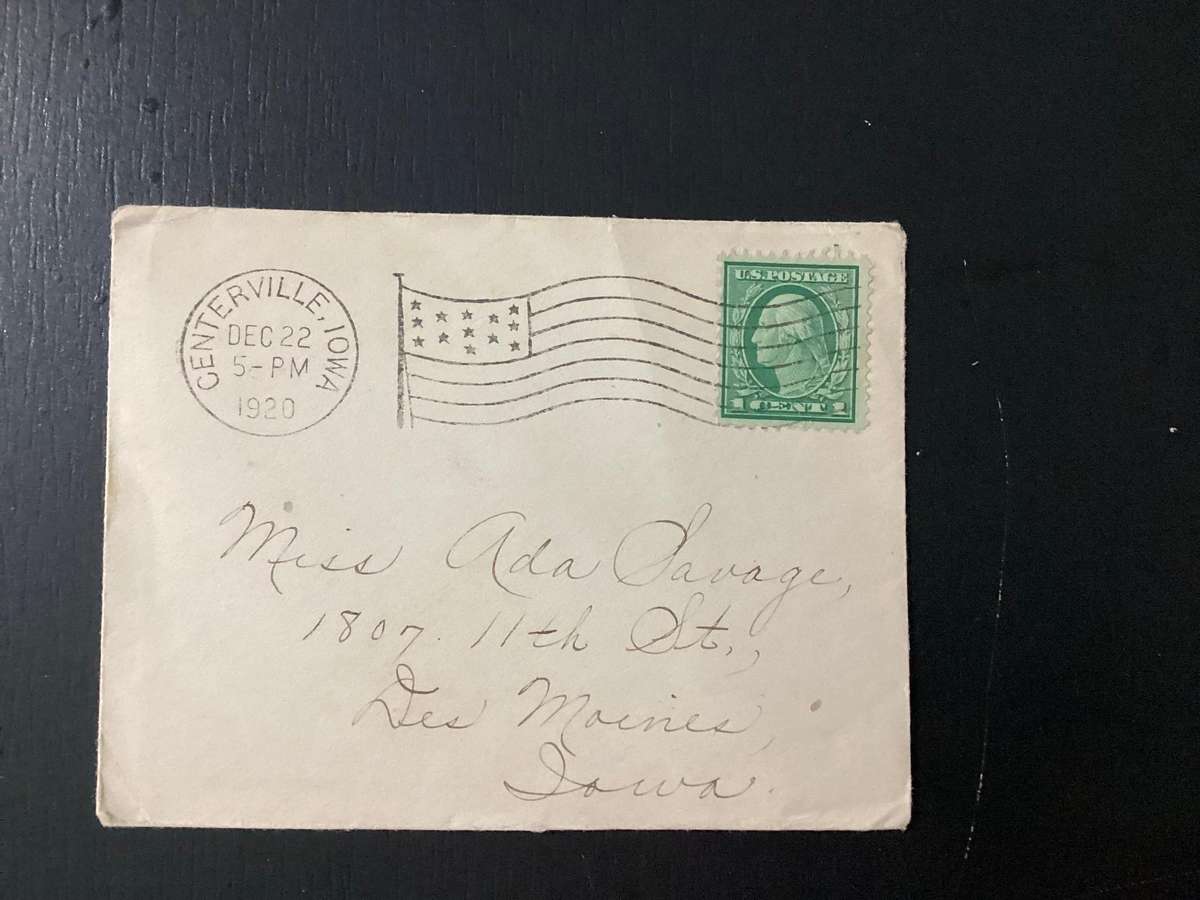 CENTERVILLE, IOWA
DEC 22
5-PM
1920
U.S. POSTAGE
1 CENT 1
Miss Ada Savage,
1807. 11th St.,
Des Moines,
Iowa.